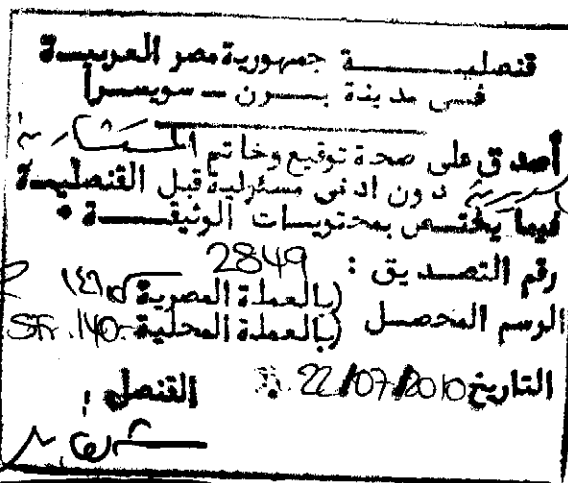 قنصليـــــة جمهورية مصر العربيـــة
فـى مدينة بـــرن ـ سويســـرا
أصدق على صحة توقيع وخاتم
دون ادنى مسئولية قبل القنصليـــة
فيما يختـــص بمحتويـــات الوثيقـــة •
رقم التصـديق : 2849
الرسم المحصـــل (بالعملة المصرية
(بالعملة المحلية SFr. 140.-
التاريخ 22/07/2010
القنصل :